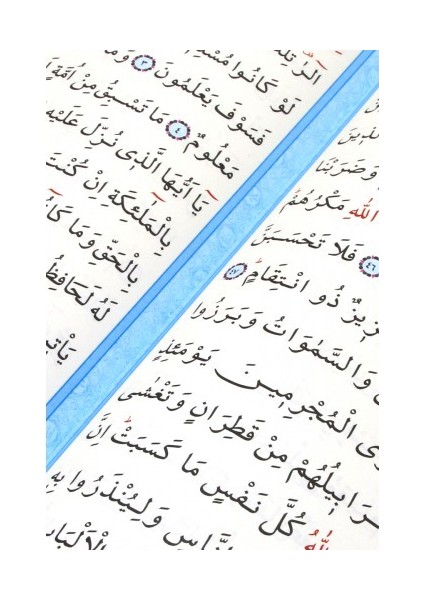 وَضَرَبْنَا
اللّٰهِ مَكْرُهُمْ
٤٦ فَلَا تَحْسَبَنَّ
زِيزٌ ذُو انْتِقَامٍ ٤٧
وَالسَّمٰوَاتُ وَبَرَزُوا
الْمُجْرِمِينَ يَوْمَئِذٍ
رَابِيلُهُمْ مِنْ قَطِرَانٍ وَتَغْشٰى
كُلَّ نَفْسٍ مَا كَسَبَتْ اِنَّ
النَّاسِ وَلِيُنْذَرُوا بِهِ
الْاَلْبَابِ
الٓرٰ تِلْ
لَوْ كَانُوا مُسْ
فَسَوْفَ يَعْلَمُونَ ٣ وَمَا
مَعْلُومٌ ٤ مَا تَسْبِقُ مِنْ اُمَّةٍ
يَٓا اَيُّهَا الَّذِى نُزِّلَ عَلَيْهِ
بِالْمَلٰٓئِكَةِ اِنْ كُنْتَ
بِالْحَقِّ وَمَا كَا
لَهُ لَحَافِظُ
يَأْتِي